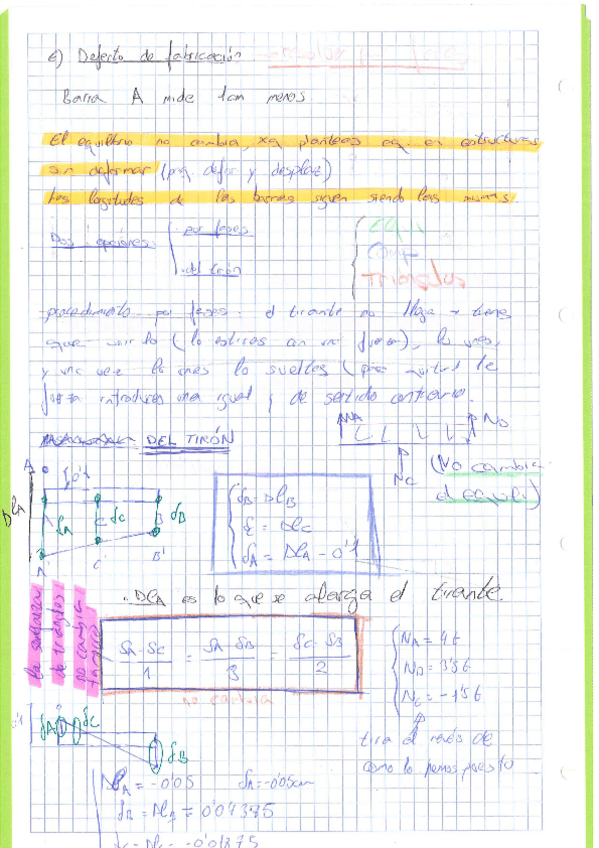 e) Defecto de fabricación
Barra A mide 1cm menos
El equilibrio no cambia, xq planteas eq. en estructuras
sin deformar (peq. defor y desplaz)
Las longitudes de las barras siguen siendo las mismas.
Dos opciones
por fases
del tirón
EQ
Comp
Triángulos
procedimiento por fases: el tirante no llega → tienes
que unirlo (lo estiras con una fuerza), lo unes,
y una vez lo unes lo sueltas (para quitarle
fuerza introduces una igual y de sentido contrario.
DEL TIRÓN
NA
ND
NC
(No cambia
el equili)
A
0'1
ΔlA
δA
δC
δB
C
B
A'
C'
B'
δB = ΔlB
δC = ΔlC
δA = ΔlA - 0'1
ΔlA es lo que se alarga el tirante.
la semejanza
de triángulos
no cambia
tampoco
δA-δC / 1 = δA-δB / 3 = δC-δB / 2
no cambia
NA = 4t
NB = 3'5t
NC = -1'5t
tira al revés de
como lo hemos puesto
0'1
δA
δC
δB
ΔlA = -0'05
δA = -0'05cm
δB = ΔlB = 0'04375
δC = ΔlC = -0'01875